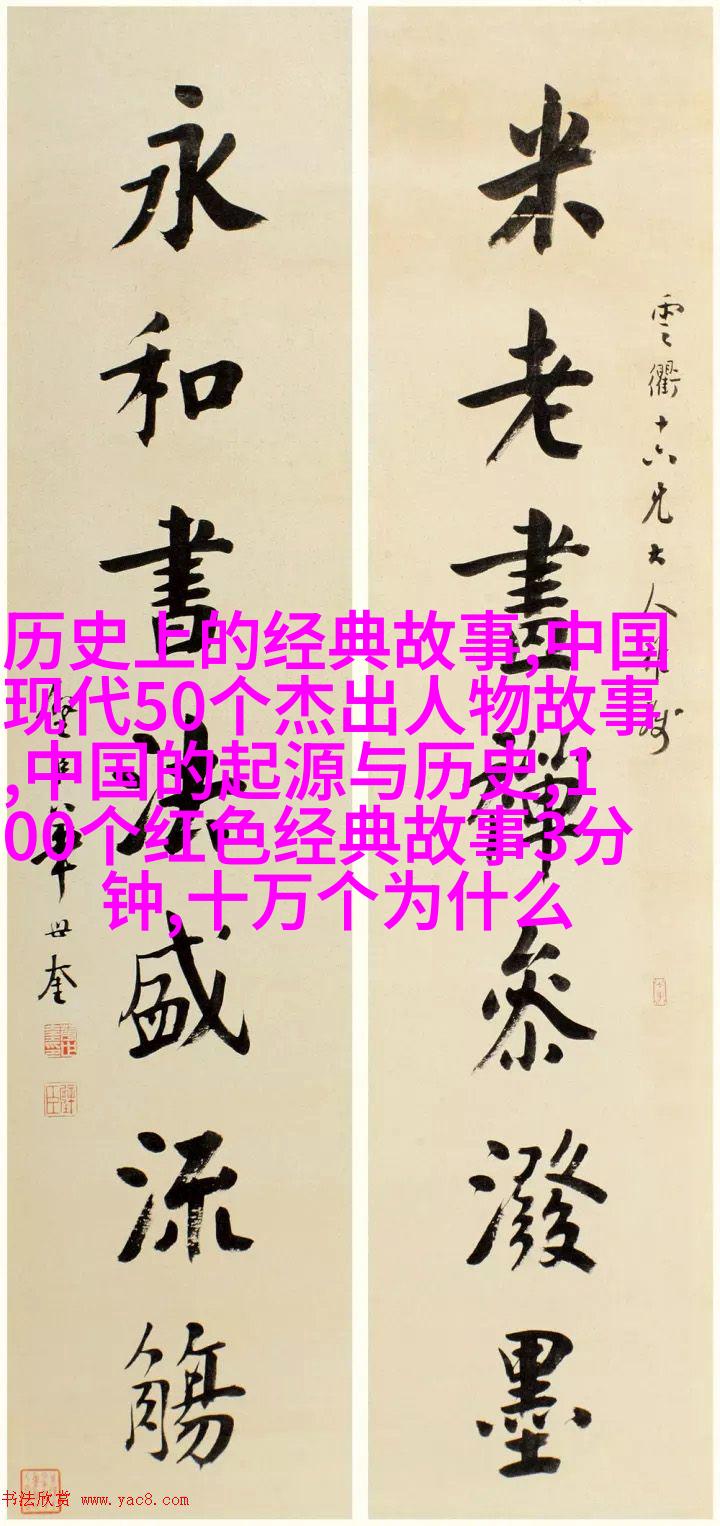 雲衢十六兄大人雅
米老畫禪參潑墨
永和書法盛流觴
璧臣華世奎
历史上的经典故事,中国
现代50个杰出人物故事
,中国的起源与历史,1
00个红色经典故事3分
钟,十万个为什么
书法欣赏 www.yac8.com